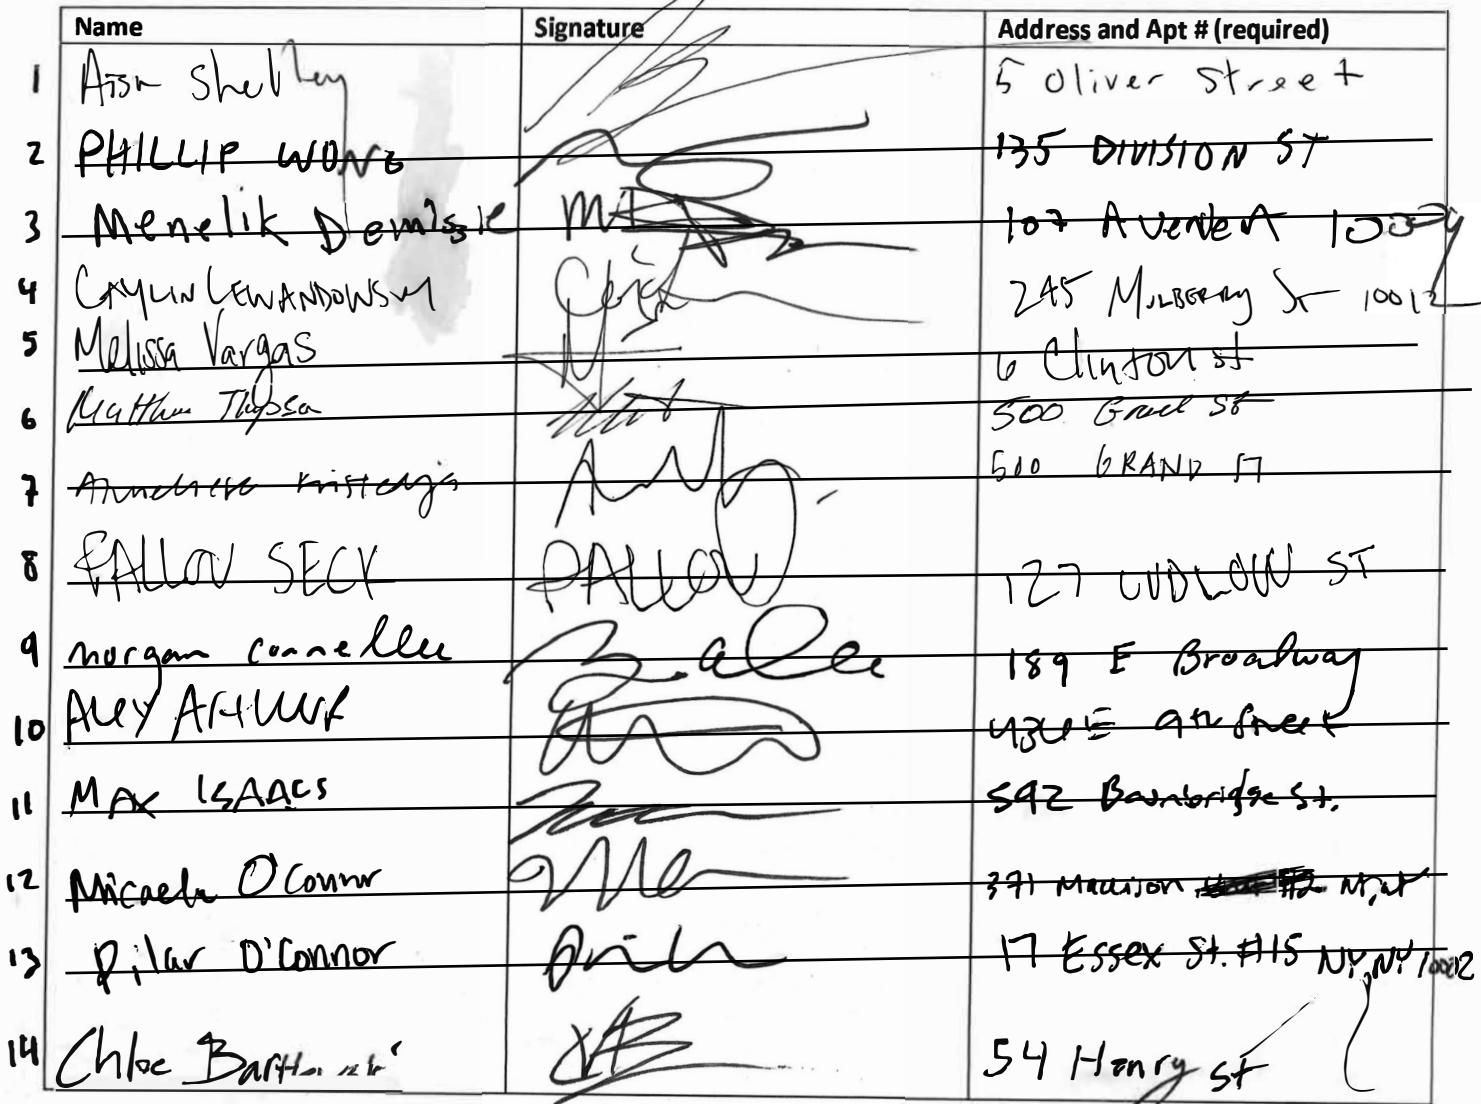 Name Signature Address and Apt # (required)
1 5 Oliver Street
2 PHILLIP WONG 135 DIVISION ST
3 Menelik Demissie 107 Avenue A 10009
4 CAYLIN LEWANDOWSKI 245 MULBERRY ST 10012
5 Melissa Vargas 6 Clinton st
6 500 Grand St
7 500 GRAND ST
8 PALLOU SECK PALLOU 127 LUDLOW ST
9 morgan 189 E Broadway
10 E 9th Street
11 MAX ISAACS 592 Bainbridge St.
12 Micaela O'Connor 371 Madison
13 Pilar O'Connor 17 Essex St. #15 NY, NY
14 Chloe 54 Henry St